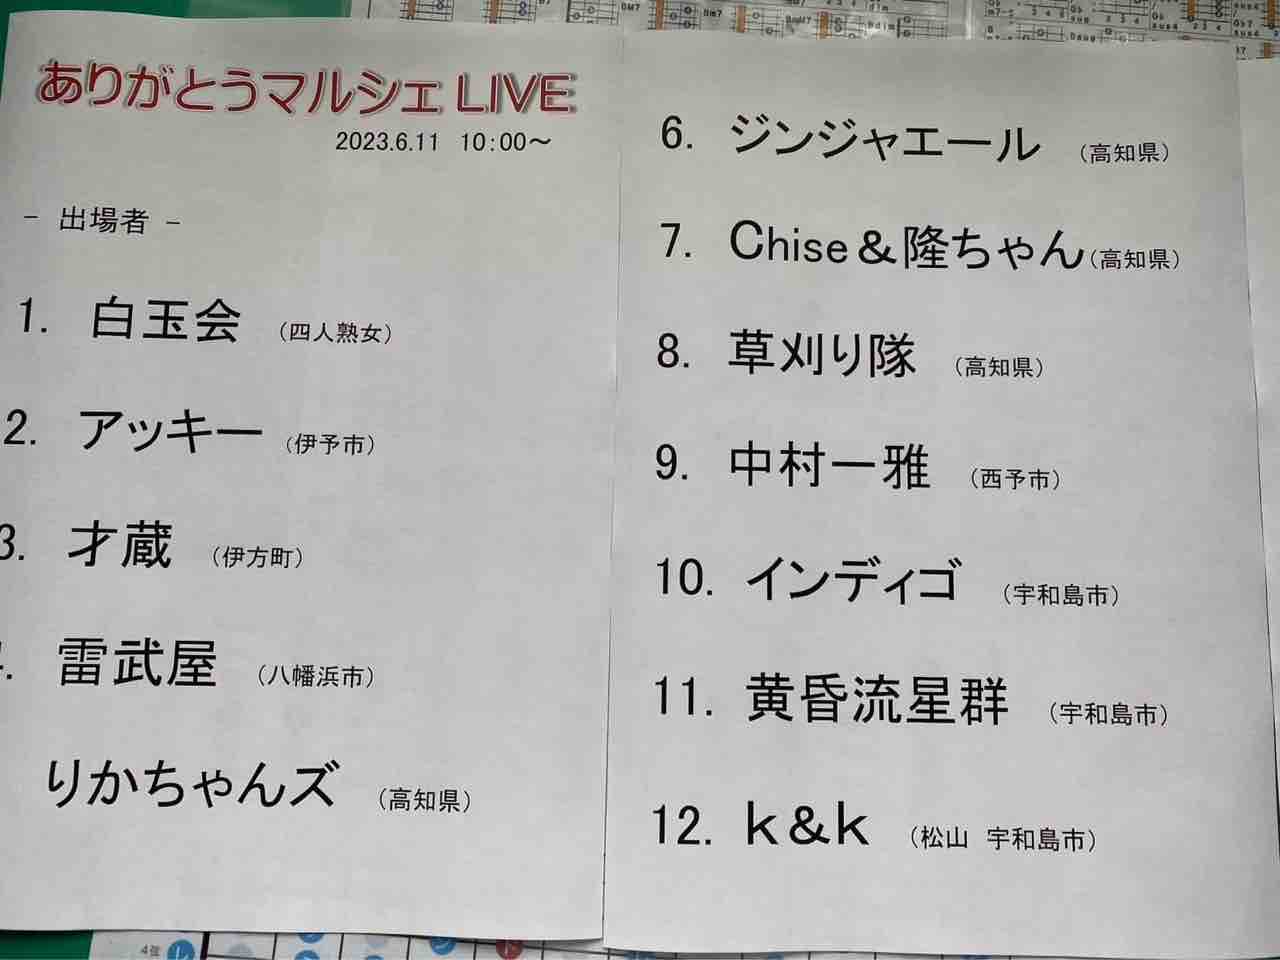 ありがとうマルシェ LIVE
2023.6.11 10:00～
- 出場者 -
1. 白玉会 （四人熟女）
2. アッキー （伊予市）
3. 才蔵 （伊方町）
雷武屋 （八幡浜市）
りかちゃんズ （高知県）
6. ジンジャエール （高知県）
7. Chise＆隆ちゃん（高知県）
8. 草刈り隊 （高知県）
9. 中村一雅 （西予市）
10. インディゴ （宇和島市）
11. 黄昏流星群 （宇和島市）
12. k＆k （松山 宇和島市）
4弦